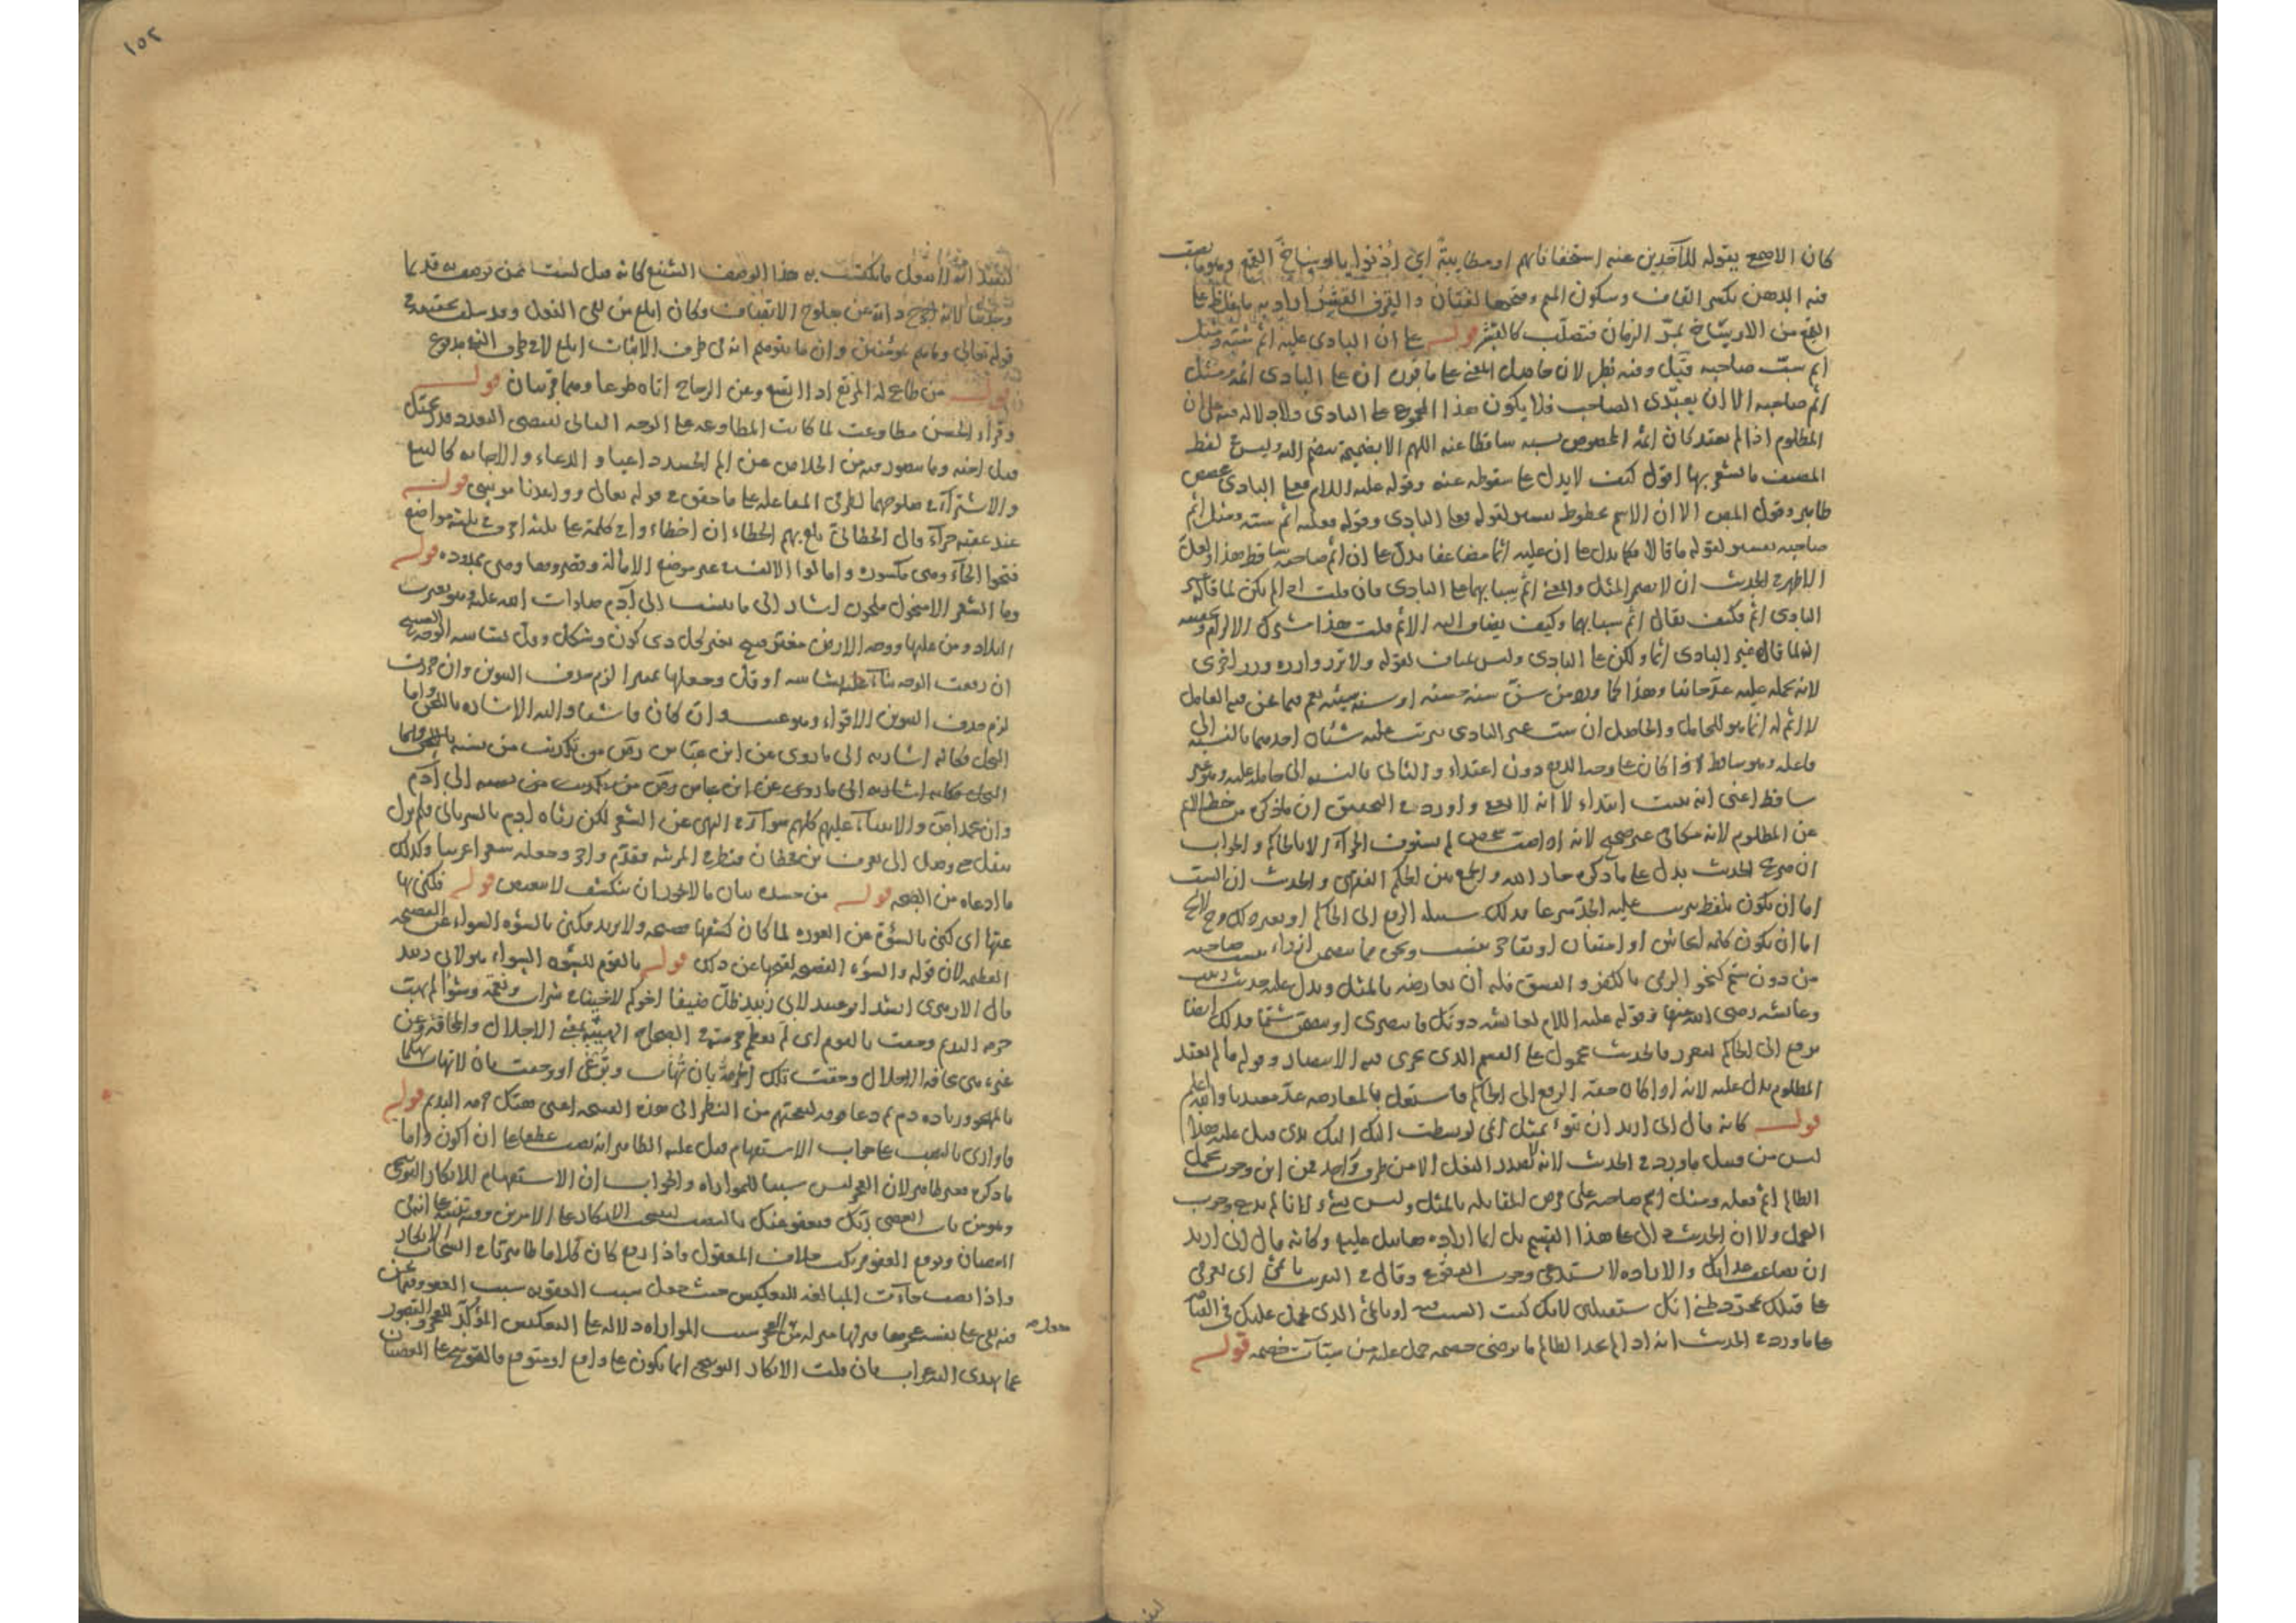 كان الاصمعي يقوله للآخذين عنه استخفافا بهم او مطايبة اي اُذنوا بالاوساخ القمع وهو ما يصب
فيه الدهن بكسر القاف وسكون الميم وفتحها لغتان والقرف القشر اراد به ما يغلظ على
القمع من الاوساخ بمرّ الزمان فتصلّب كالقشر قوله على ان البادي عليه اثم سبّه ومثل
اثم سبّ صاحبه قيل وفيه نظر لان حاصل المعنى على ما قرر ان على البادي اثمه ومثل
اثم صاحبه الا ان يعتدى الصاحب فلا يكون هذا المجموع على البادي ولا دلالة فيه على ان
المظلوم اذا لم يعتد كان اثمه المخصوص بسبه ساقطا عنه اللهم الا بضميمة تنضم اليه وليس في لفظ
المصنف ما يشعر بها اقول كيف لا يدل على سقوطه عنه وقوله عليه السلام فعلى البادي
ظاهر وقول المص الا ان الاثم محطوط تفسير لقوله فعلى البادي وقوله فعليه اثم سبه ومثل اثم
صاحبه تفسير لقوله ما قالا فكما يدل على ان عليه اثما مضاعفا يدل على ان اثم صاحبه ساقط هذا
الاظهر في الحديث ان لا يضمر المثل والمعنى اثم سبابهما على البادي فان قلت اذا لم يكن لما قاله غير
البادي اثم فكيف يقال اثم سبابهما وكيف يضاف اليه الاثم قلت هذا مشترك الالزام
ان لما قاله غير البادي اثما ولكن على البادي وليس بمناف لقوله ولا تزر وازرة وزر اخرى
لانه بحمله عليه عدّ جانيا وهذا كما ورد من سنّ سنة حسنة او سنة سيئة نعم فيما نحن فيه العامل
لا اثم له انما هو للحامل والحاصل ان سب غير البادي يترتب عليه شيئان احدهما بالنسبة الى
فاعله وهو ساقط اذا كان على وجه الدفع دون اعتداء والثاني بالنسبة الى حامله عليه وهو غير
ساقط اعني انه يثبت ابتداء لا انه لا يعفى واورد في التحقيق ان ما ذكره من حط الاثم
عن المظلوم لانه مكافئ غير صحيح لانه اذا سب شخص لم يستوف الجزاء الا بالحاكم والجواب
ان صريح الحديث يدل على ما ذكره جار الله والجمع بين الحكم الفقهي والحديث ان السب
اما ان يكون بلفظ يترتب عليه الحدّ شرعا فذلك سبيله الرفع الى الحاكم او بغير ذلك وح لا يخ
اما ان يكون كلمة ايحاش او امتنان او تفاخر بنسب ونحوه مما يتضمن ازراء بنسب صاحبه
من دون شتم كنحو الرمي بالكفر والفسق فله ان يعارضه بالمثل ويدل عليه حديث زينب
وعائشة رضي الله عنها وقوله عليه السلام لعائشة دونك فانتصري او يتضمن شتما فذلك ايضا
يرفع الى الحاكم ليعزر فالحديث محمول على القسم الذي يجري فيه الانتصار وقوله ما لم يعتد
المظلوم يدل عليه لانه اذا كان حقه الرفع الى الحاكم فاشتغل بالمعارضة عدّ معتديا والله اعلم
قوله كانه قال اني اريد ان تبوء بمثل اثمي لو بسطت اليك يدي قيل عليه هذا
ليس من قبيل ما ورد في الحديث لانه لم يصدر الفعل الا من طرف واحد فمن اين وجوب تحمل
الظالم اثم فعله ومثل اثم صاحبه على فرض المقابلة بالمثل وليس بشيء لانا لم ندع وجوب
التحمل ولا ان الحديث دال على هذا القسم بل انما اراده هابيل عليه وكانه قال اني اريد
ان يضاعف عذابك والارادة لا تستدعي وجوب الوقوع وقال في التقريب باثمي اي بعزمي
على قتلك بمجرد ظني انك ستقتلني لانك كنت السبب فيه او باثمي الذي تحمل عليك في القيامة
على ما ورد في الحديث انه اذا لم يجد الظالم ما يرضي خصمه حمل عليه من سيئات خصمه قوله
١٥٢
ليفيد انه لا يفعل ما يكتسب به هذا الوصف الشنيع كانه قيل لست ممن يوصف به
لانه اخرج ذاته عن الاتصاف وكان ابلغ من نفي الفعل وقد سلف تحقيقه في
قوله تعالى وما هم بمؤمنين وان ما يتوهم انه في طرف الاثبات ابلغ لا في طرف النفي مدفوع
قوله من طاع له المرتع اذا اتسع وعن الزجاج اتاه طوعا وهما قريبان قوله
وقراء الحسن فطاوعت لما كانت المطاوعة على الوجه الثاني تقتضي التعدد
قتل اخيه وما يتصور فيه من الخلاص عن الم الحسد داعيا والدعاء والاجابة كالبيع
والاشتراء في صلوحهما لطرفي المفاعلة على ما حقق في قوله تعالى وواعدنا موسى قوله
عند عقبة حراء قال الخطابي بلغ بهم الخطاء ان اخطاءوا في كلمة على ثلثة احرف في ثلثة مواضع
فتحوا الحاء وهي مكسورة وامالوا الالف في غير موضع الامالة وقصروها وهي ممدودة قوله
وما الشعر الا منحول ملحون اشار الى ما ينسب الى آدم صلوات الله عليه وهو تغيرت
البلاد ومن عليها ووجه الارض مغبر قبيح تغير كل ذي لون وشكل وقل بشاشة الوجه الصبيح
ان رفعت الوجه بناء على بشاشة او قل وجعلها تمييزا لزم حذف التنوين وان جررت
لزم حذف التنوين الاقواء وهو عيب وان كان فاشيا واليه الاشارة باللحن واما
النحل فكانه اشارة الى ما روى عن ابن عباس رض من تكذيب من نسبه
النحل فكانه اشارة الى ما روى عن ابن عباس رض من تكذيب من نسبه الى آدم
وان محمدا ص والانبياء عليهم كلهم سواء في النهي عن الشعر لكن رثاه آدم بالسرياني فلم يزل
ينقل حتى وصل الى يعرب بن قحطان فنظر في المرثية فقدّم واخر وجعله شعرا عربيا وكذلك
ما ادعاه من القبح قوله من جسده بيان ما لا يجوز ان ينكشف لا تبعيض قوله فكنى بها
عنها اي كنى بالسوءة عن العورة لما كان كشفها قبيحة ولا يريد فكنى بالسوءة السواء عن الفضيحة
العظيمة لان قوله والسوءة الفضيحة لقبحها عن ذلك قوله بالقوم للسوءة السواء هو لابي زبيد
قال الازهري انشد ابو عبيد لابي زبيد ظلّ ضيفا اخوكم لاخينا في شراب ونعمة وشواء لم يهب
حرمة النديم وحقت يا لقوم اي لم يعظم حرمته في الصحاح الهيبة بمعنى الاجلال والمخافة وعن
غيره هي مخافة الاجلال وحقت تلك الحرمة بان تُهاب وتُرعى او وحقت بان لا تهاب تهكما
بالمهجو وزيادة ذم ثم دعا قومه ليعجبهم من النظر الى هذه الفضيحة اعني هتك حرمة النديم قوله
فاواري بالنصب على جواب الاستفهام قيل عليه الظاهر انه نصب عطفا على ان اكون واما
ما ذكره فغير ظاهر لان العجز ليس سببا للمواراة والجواب ان الاستفهام للانكار التوبيخي
وهو من باب اتعصي ربّك فيعفو عنك بالنصب لينسحب الانكار على الامرين وفيه تنبيه على انه في
العصيان وتوقع العفو مرتكب خلاف المعقول واذا رفع كان كلاما ظاهريا في انسحاب الانكار
واذا نصب جاءت المبالغة للتعكيس حيث جعل سبب العقوبة سبب العفو وفيما نحن
فيه نعى على نفسه عجزها فنزلها منزلة من جعل العجز سبب المواراة دلالة على التعكيس المؤكد للعجز والقصور
عما يهدي اليه غراب فان قلت الانكار التوبيخي انما يكون على واقع او متوقع فالتوبيخ على العصيان